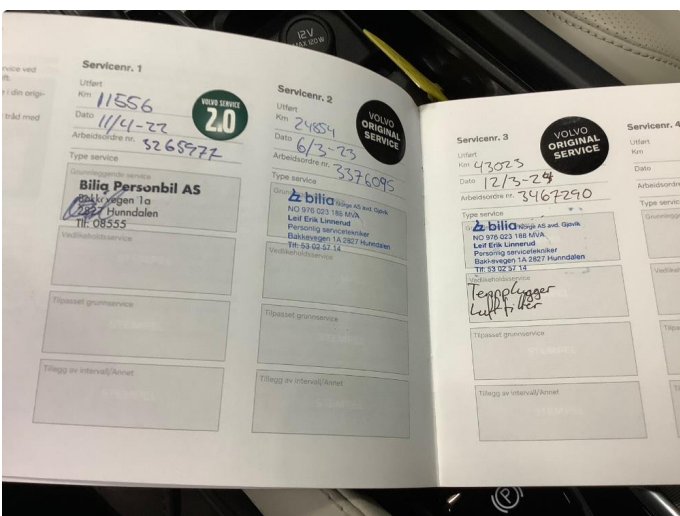 12V
MAX 120W
rvice ved
ft.
e i din origi-
tråd med
Servicenr. 1
Utført
Km 11556
Dato 11/4-22
Arbeidsordre nr. 3265977
Type service
VOLVO SERVICE
2.0
Grunnleggende service
Bilia Personbil AS
Bakkevegen 1a
2827 Hunndalen
Tlf: 08555
Vedlikeholdsservice
Tilpasset grunnservice
Tillegg av intervall/Annet
Servicenr. 2
Utført
Km 24854
Dato 6/3-23
Arbeidsordre nr. 3376095
Type service
VOLVO
ORIGINAL
SERVICE
bilia Norge AS avd. Gjøvik
NO 976 023 188 MVA
Leif Erik Linnerud
Personlig servicetekniker
Bakkevegen 1A 2827 Hunndalen
Tlf: 53 02 57 14
Vedlikeholdsservice
Tilpasset grunnservice
Tillegg av intervall/Annet
Servicenr. 3
Utført
Km 43023
Dato 12/3-24
Arbeidsordre nr. 3467290
Type service
VOLVO
ORIGINAL
SERVICE
bilia Norge AS avd. Gjøvik
NO 976 023 188 MVA
Leif Erik Linnerud
Personlig servicetekniker
Bakkevegen 1A 2827 Hunndalen
Tlf: 53 02 57 14
Vedlikeholdsservice
Tennplugger
Luftfilter
Tilpasset grunnservice
Tillegg av intervall/Annet
Servicenr. 4
Utført
Km
Dato
Arbeidsordre
Type servic
Grunnlegg
Vedlike
Tilpa
P